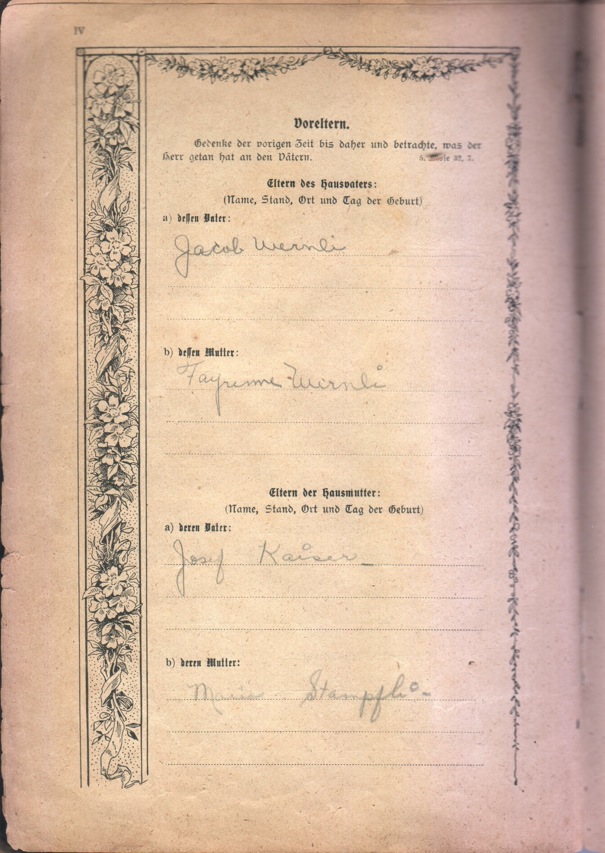 IV
Voreltern.
Gedenke der vorigen Zeit bis daher und betrachte, was der
Herr getan hat an den Vätern. 5. Mose 32, 7.
Eltern des Hausvaters:
(Name, Stand, Ort und Tag der Geburt)
a) dessen Vater:
Jacob Wernli
b) dessen Mutter:
Wernli
Eltern der Hausmutter:
(Name, Stand, Ort und Tag der Geburt)
a) deren Vater:
Josef Kaiser
b) deren Mutter:
Maria